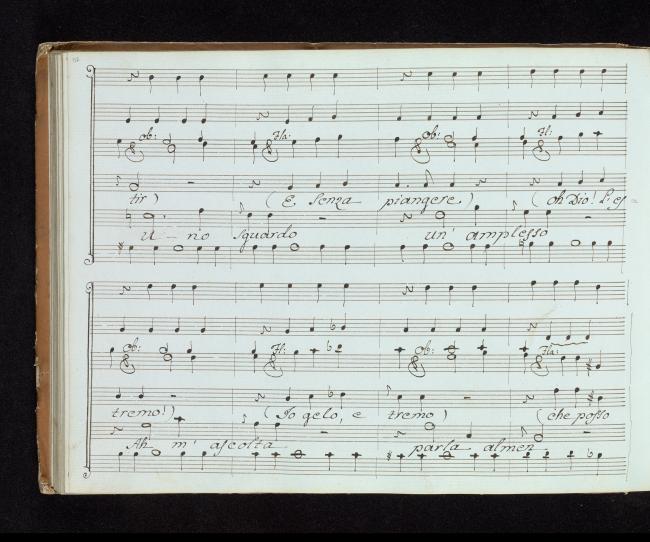 ob: Fla: ob: Fl:
tir) (E senza piangere) (oh Dio! L'es
u - no sguardo un' amplesso
ob: Fl: ob: Fla:
tremo!) (Io gelo, e tremo) (che posso
Ah m' ascolta parla almen